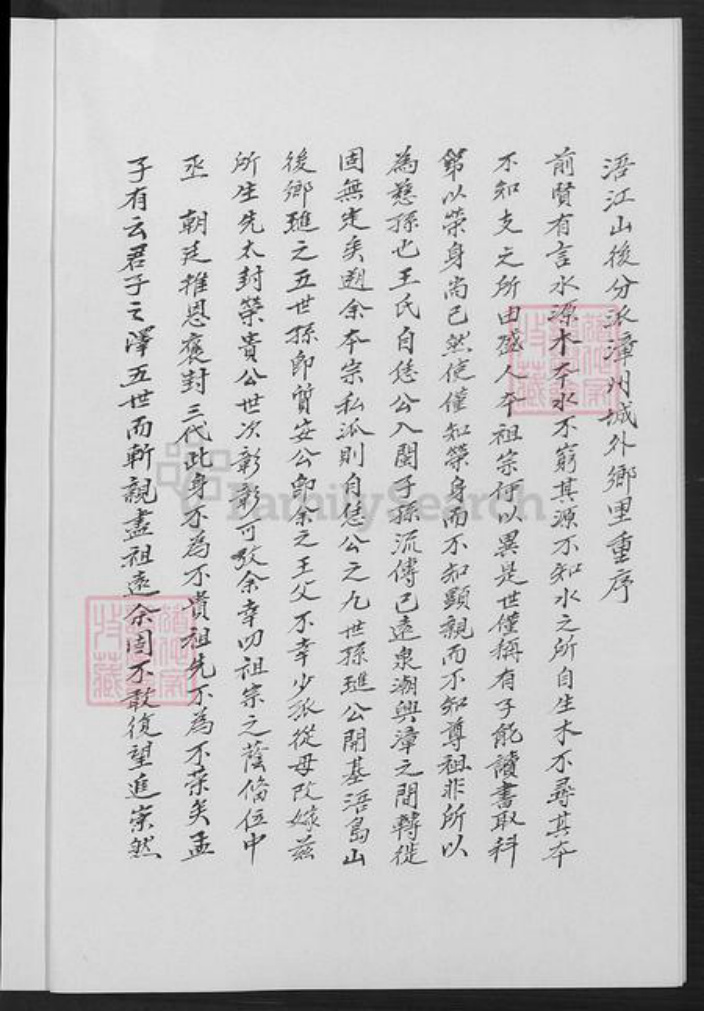 浯江山後分派漳州城外鄉里重序
前賢有言水源木本水不窮其源不知水之所自生木不尋其本
不知支之所由盛人本祖宗何以異是世僅稱有子能讀書取科
第以榮身尚已然使僅知榮身而不知顯親而不知尊祖非所以
為慈孫也王氏自恁公入閩子孫流傳已遠泉潮興漳之間轉徙
固無定矣遡余本宗私派則自恁公之九世孫璡公開基浯島山
後鄉璡之五世孫即質安公即余之王父不幸少孤從母改嫁茲
所生先太封榮貴公世次彰彰可攷余幸叨祖宗之蔭俻位中
丞 朝廷推恩褒封三代此身不為不貴祖先不為不榮矣孟
子有云君子之澤五世而斬親盡祖遠余固不敢復望追崇然
FamilySearch
特藏
特藏